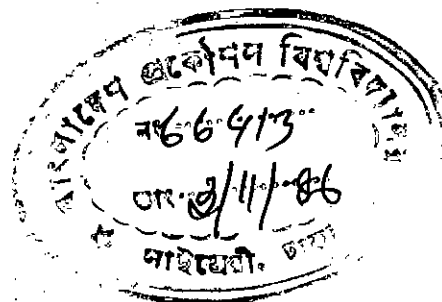 বাংলাদেশ প্রকৌশল বিশ্ববিদ্যালয়
নং
তাং 3/11/86
লাইব্রেরী, ঢাকা